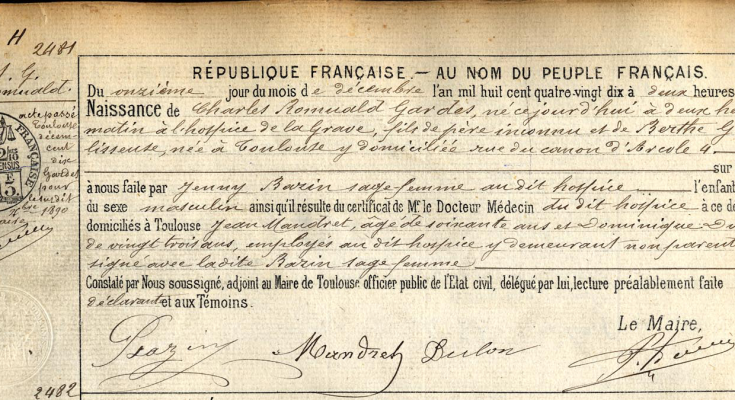 H
2481
RÉPUBLIQUE FRANÇAISE. — AU NOM DU PEUPLE FRANÇAIS.
Du onzième jour du mois de décembre l'an mil huit cent quatre-vingt dix à deux heures
Naissance de Charles Romuald Gardes, né cejourd'hui à deux he
matin à l'hospice de la Grave, fils de père inconnu et de Berthe G
lisseuse, née à Toulouse y domiciliée rue du canon d'Arcole 4
sur
à nous faite par Jenny Bazin sage femme au dit hospice l'enfant
du sexe masculin ainsi qu'il résulte du certificat de Mr. le Docteur Médecin du dit hospice à ce dé
domiciliés à Toulouse Jean Mandret, âgé de soixante ans et Dominique Du
de vingt trois ans, employés au dit hospice y demeurant non parent
signé avec ladite Bazin sage femme
Constaté par Nous soussigné, adjoint au Maire de Toulouse officier public de l'Etat civil, délégué par lui, lecture préalablement faite
déclarante et aux Témoins.
Le Maire,
Bazin Mandret Dulon
omuald.
acte passé
Toulouse
décem
cent
dix
Gardes
pour
1890
FRANÇAISE
2482